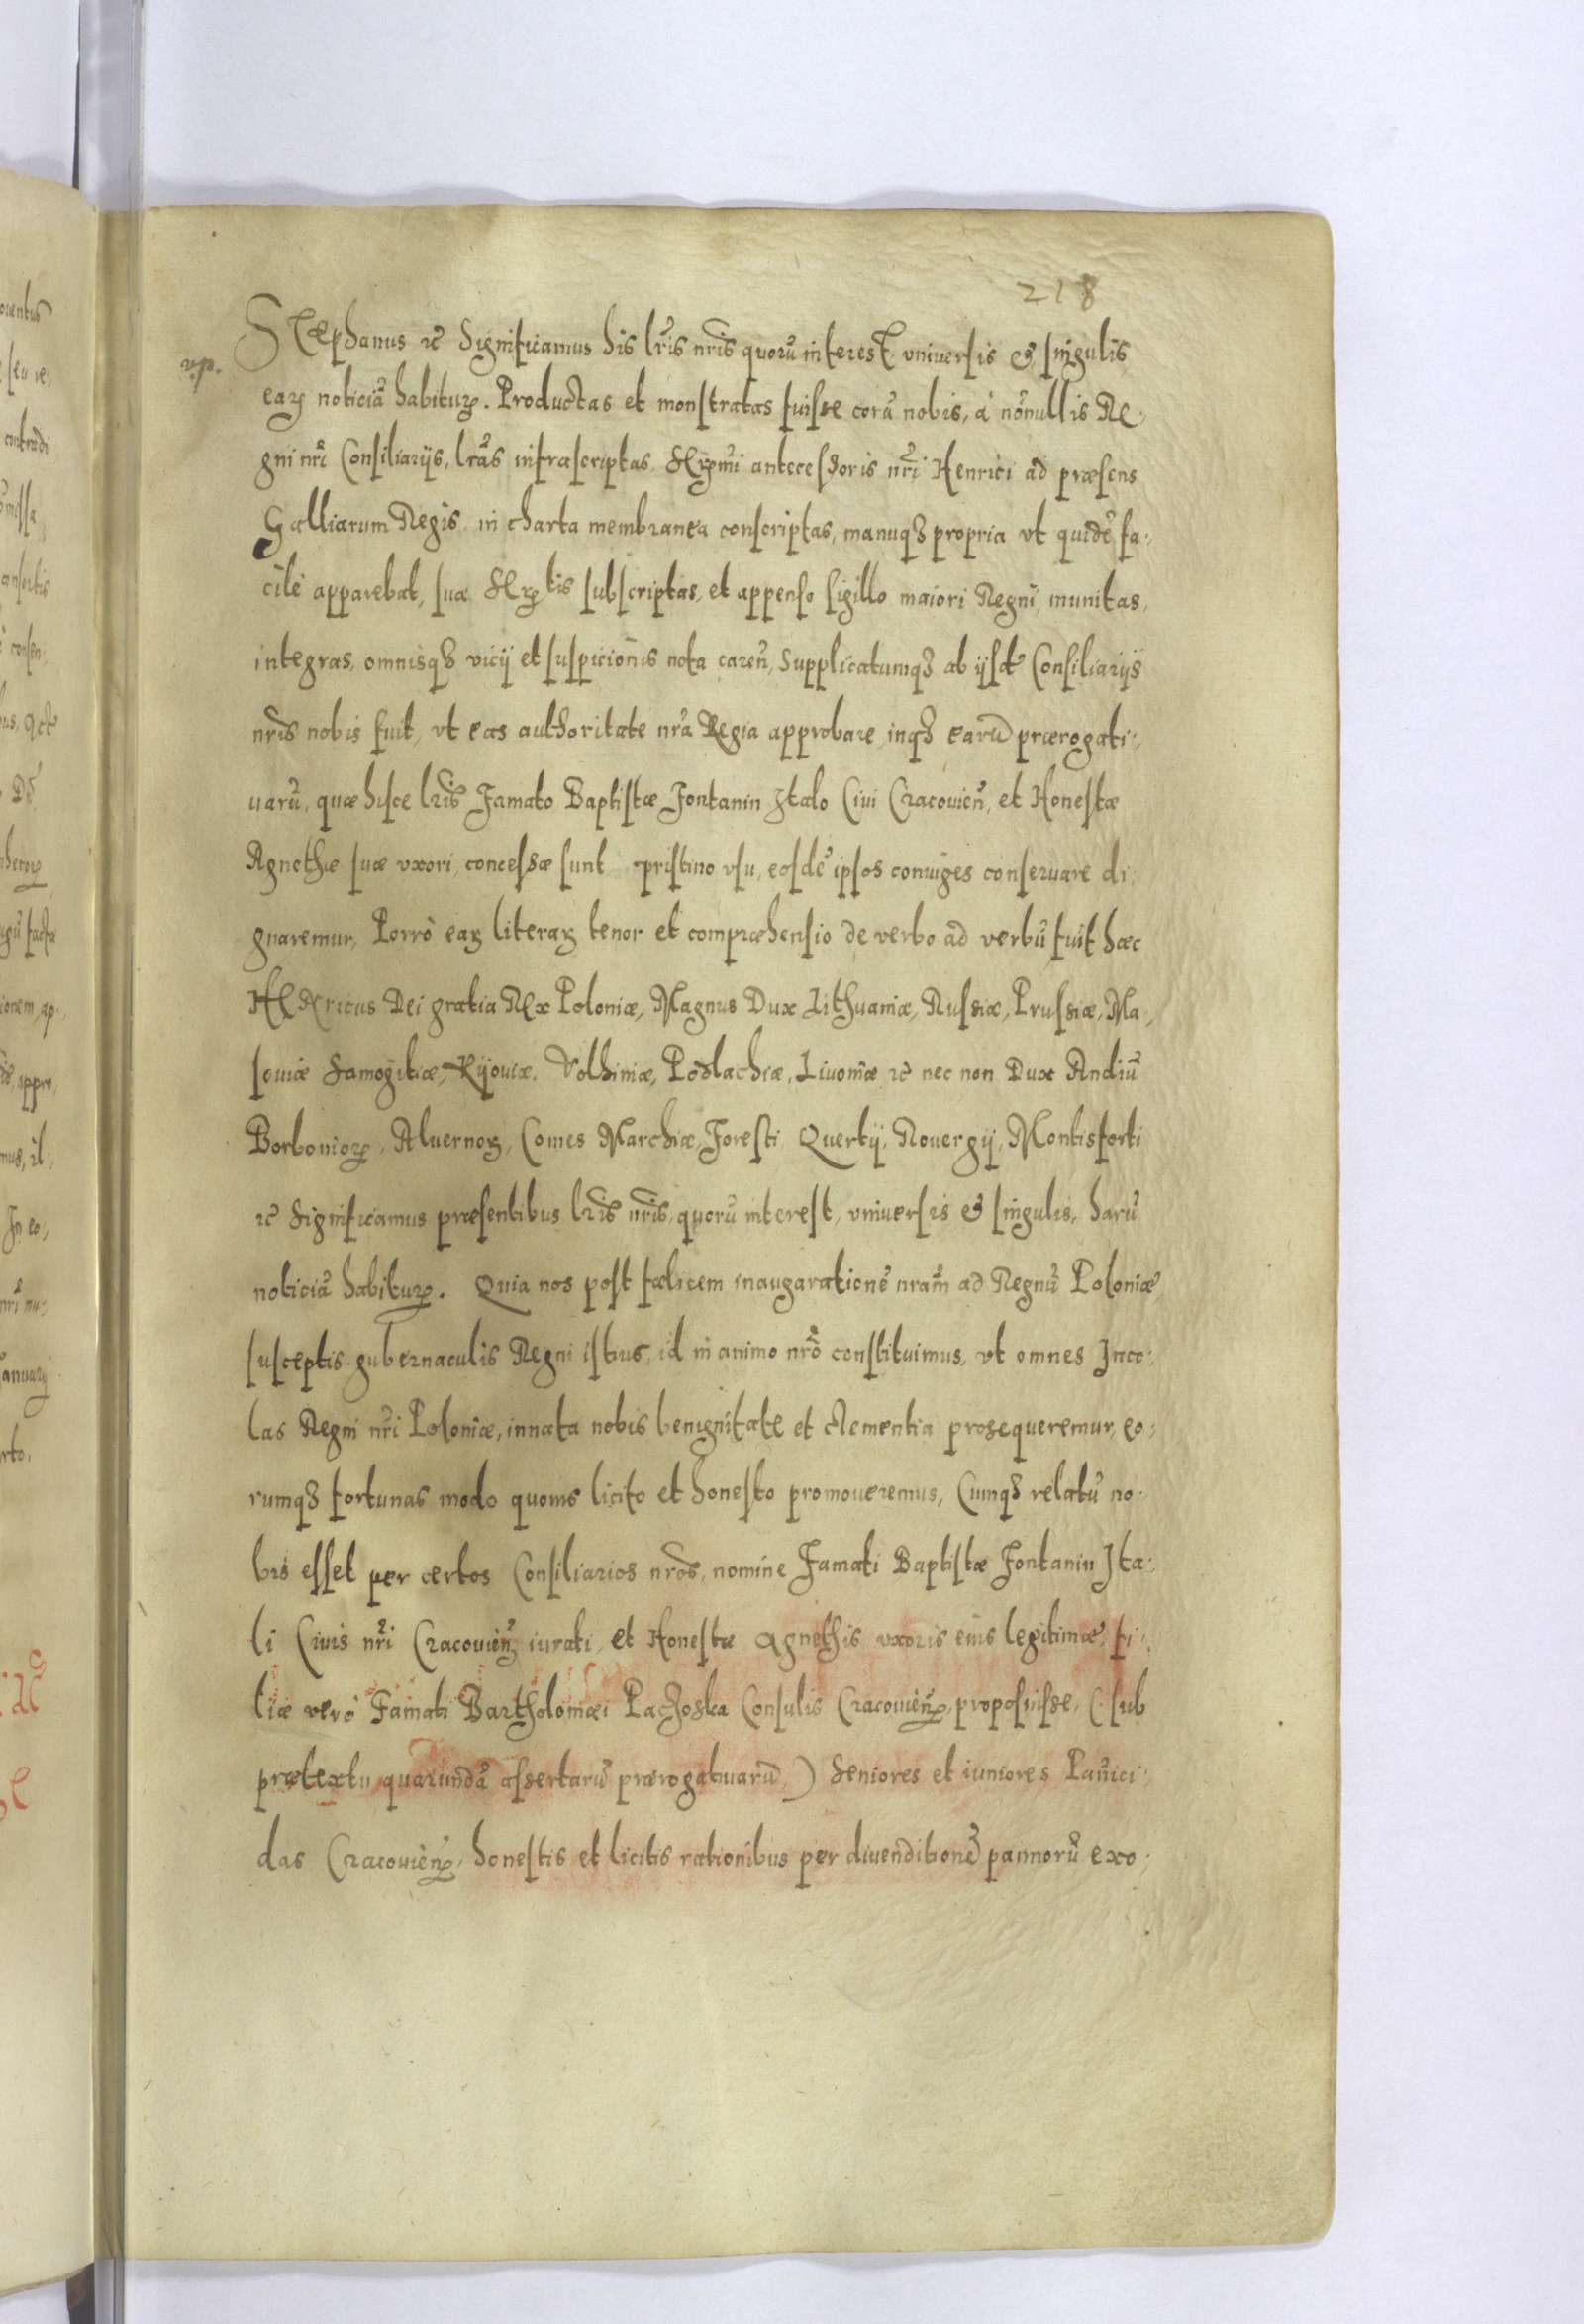 218
Stephanus &c Significamus his lr̃is nr̃is quorũ interest vniversis & singulis
earꝝ noticiã habiturꝝ. Productas et monstratas fuisse corã nobis, à nõnullis Re-
gni nr̃i Consiliarijs, lrãs infrascriptas Serꝫmi antecessoris nr̃i Henrici ad præsens
Galliarum Regis in charta membranea conscriptas, manuqꝫ propria vt quidẽ fa-
cilè apparebat, suæ Serꝫtis subscriptas, et appenso sigillo maiori Regni, munitas,
integras, omnisqꝫ vicij et suspicionis nota careñ, Supplicatumqꝫ ab ijsdẽ Consiliarijs
nr̃is nobis fuit, vt eas authoritate nr̃a Regia approbare, inqꝫ earũ prærogati-
uarũ, quæ hisce lr̃is Famato Baptistæ Fontanin Italo Civi Cracovieñ, et Honestæ
Agnethæ suæ vxori, concessæ sunt pristino vsu, eosdẽ ipsos coniuges conseruare di-
gnaremur, Porrò earꝝ literarꝝ tenor et compræhensio de verbo ad verbũ fuit hæc
HENricus Dei gratia Rex Poloniæ, Magnus Dux Lithuaniæ, Russiæ, Prussiæ, Ma-
souiæ Samogitiæ, Kijouiæ. Volhiniæ, Podlachiæ, Liuoniæ &c nec non Dux Andiũ
Borboniorꝝ, Aluernorꝝ, Comes Marchiæ, Foresti Quertij, Rouergij, Montisforti
&c Significamus præsentibus lr̃is nr̃is, quorũ interest, vniversis & singulis, harũ
noticiã habiturꝝ. Quia nos post fœlicem inaugarationẽ nram̃ ad Regnũ Poloniæ,
susceptis gubernaculis Regni istius, id in animo nr̃o constituimus, vt omnes Inco-
las Regni nr̃i Poloniæ, innata nobis benignitate et clementia prosequeremur, eo-
rumqꝫ fortunas modo quouis licito et honesto promoueremus, Cumqꝫ relatũ no-
bis esset per certos Consiliarios nr̃os, nomine Famati Baptistæ Fontanin Ita-
li Civis nr̃i Cracovieñ iurati et Honestæ Agnethis vxoris eius legitimæ, fi-
liæ verò Famati Bartholomæi Pachoska Consulis Cracovieñ, proposuisse, (sub
prætextu quarundã assertarũ prærogatiuarũ,) Seniores et iuniores Pannici-
das Cracovieñ, honestis et licitis rationibus per diuenditionẽ pannorũ exo-